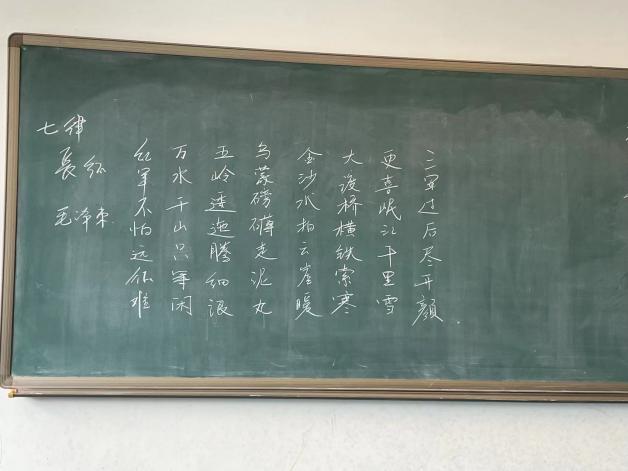 七律
長征
毛泽东
红军不怕远征难
万水千山只等闲
五岭逶迤腾细浪
乌蒙磅礴走泥丸
金沙水拍云崖暖
大渡桥横铁索寒
更喜岷江千里雪
三军过后尽开颜.